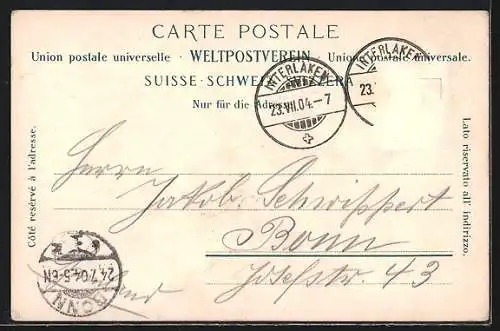 CARTE POSTALE
Union postale universelle · WELTPOSTVEREIN · Unione postale universale.
SUISSE · SCHWEIZ
Nur für die Adresse.
INTERLAKEN
23.VII.04.–7
INTERLAKEN
23.
Côté reservé à l'adresse.
Lato riservato all' indirizzo.
Herrn
Jakob Schwippert
Bonn
Josefstr. 43
BONN
24.7.04.5-6N